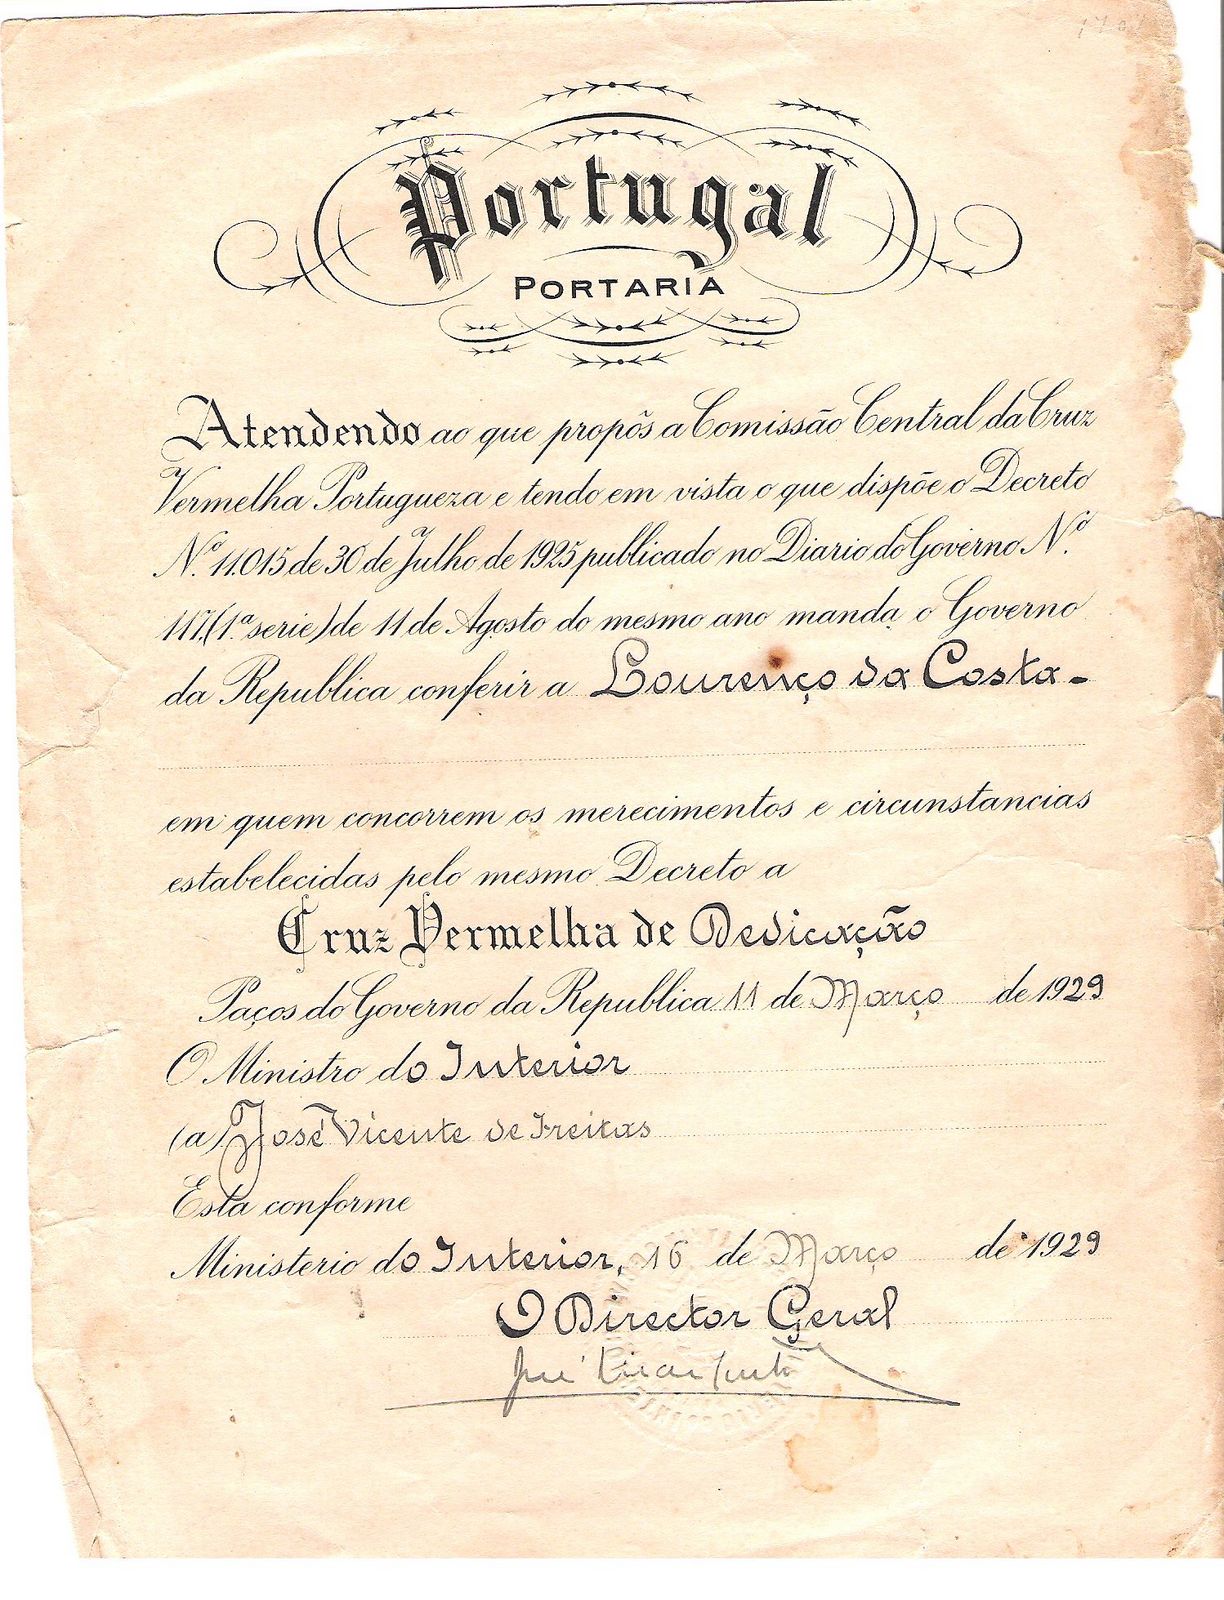 Portugal
PORTARIA
Atendendo ao que propôs a Comissão Central da Cruz
Vermelha Portugueza e tendo em vista o que dispõe o Decreto
N.º 11.015 de 30 de Julho de 1925 publicado no Diario do Governo N.º
117, (1.ª serie) de 11 de Agosto do mesmo ano manda o Governo
da Republica conferir a Lourenço da Costa -
em quem concorrem os merecimentos e circunstancias
estabelecidas pelo mesmo Decreto a
Cruz Vermelha de Dedicação
Paços do Governo da Republica 11 de Março de 1929
O Ministro do Interior
(a) José Vicente de Freitas
Esta conforme
Ministerio do Interior, 16 de Março de 1929
O Director Geral